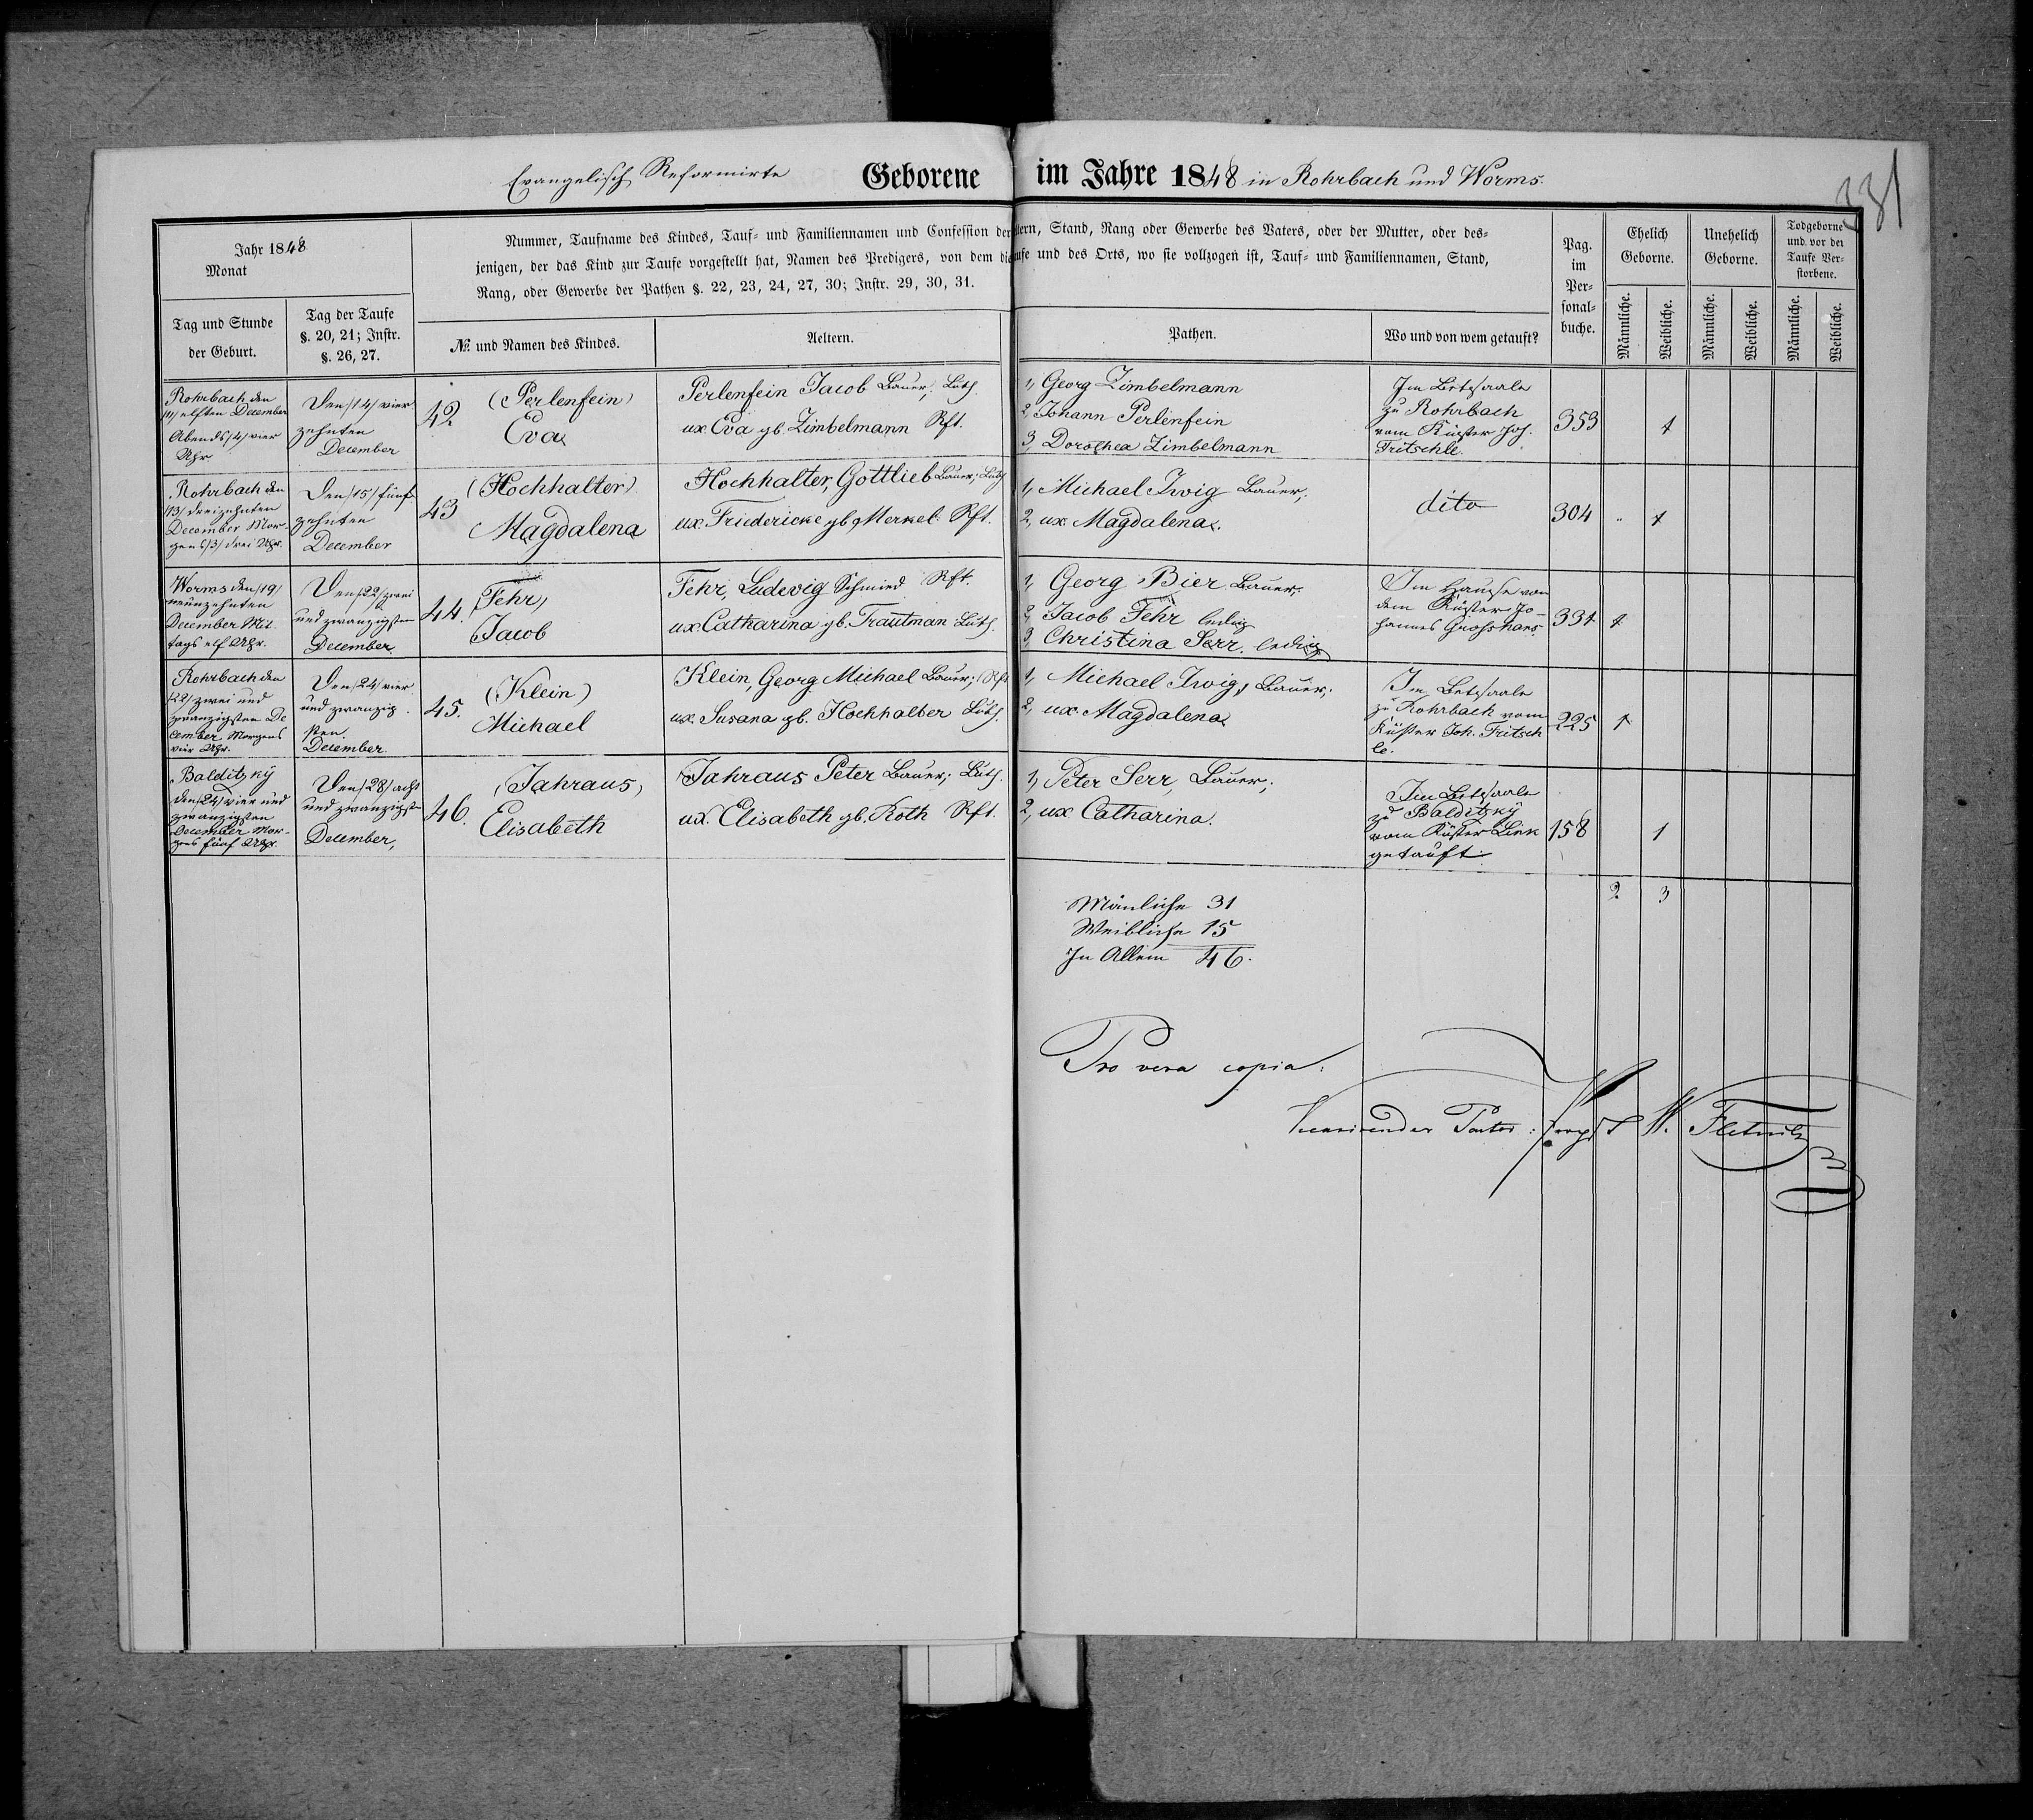 Evangelisch Reformirte Geborene im Jahre 1848 in Rohrbach und Worms.
331
Jahr 1848
Monat
Tag und Stunde
der Geburt.
Tag der Taufe
§. 20, 21; Instr.
§. 26, 27.
Nummer, Taufname des Kindes, Tauf- und Familiennamen und Confession der Aeltern, Stand, Rang oder Gewerbe des Vaters, oder der Mutter, oder des-
jenigen, der das Kind zur Taufe vorgestellt hat, Namen des Predigers, von dem die Taufe und des Orts, wo sie vollzogen ist, Tauf- und Familiennamen, Stand,
Rang, oder Gewerbe der Pathen §. 22, 23, 24, 27, 30; Instr. 29, 30, 31.
№ und Namen des Kindes.
Aeltern.
Pathen.
Wo und von wem getauft?
Pag.
im
Per-
sonal-
buche.
Ehelich
Geborne.
Unehelich
Geborne.
Todgeborne
und vor der
Taufe Ver-
storbene.
Männliche.
Weibliche.
Männliche.
Weibliche.
Männliche.
Weibliche.
Rohrbach den
/11/ elften December
Abends /4/ vier
Uhr
Den /14/ vier
zehnten
December
42
(Perlenfein)
Eva
Perlenfein Jacob Bauer, Luth.
ux. Eva gb. Zimbelmann Rft.
1, Georg Zimbelmann
2, Johann Perlenfein
3, Dorothea Zimbelmann
Im Betsaale
zu Rohrbach
vom Küster Joh.
Fritschle.
353
1
Rohrbach den
/13/ dreizehnten
December Mor-
gens /3/ drei Uhr.
Den /15/ fünf
zehnten
December
43
(Hochhalter)
Magdalena
Hochhalter, Gottlieb Bauer; Luth
ux. Friedericke gb. Merkel Rft.
1, Michael Irvig Bauer,
2, ux. Magdalena.
dito
304
1
Worms den /19/
neunzehnten
December Mit
tags elf Uhr.
Den /22/ zwei
und zwanzigsten
December.
44.
Fehr,
Jacob
Fehr, Ludewig Schmied Rft.
ux. Catharina gb. Trautman Luth.
1, Georg Bier Bauer,
2, Jacob Fehr ledig
3, Christina Serr. ledig
Im Hause von
dem Küster Jo-
hannes Grosshans
331
1
Rohrbach den
/22/ zwei und
zwanzigsten De
cember Morgens
vier Uhr.
Den /24/ vier
und zwanzig
sten.
December
45.
(Klein)
Michael
Klein, Georg Michael Bauer; Rft
ux. Susana gb. Hochhalter Luth.
1, Michael Irvig, Bauer.
2, ux. Magdalena
Im Betsaale
zu Rohrbach vom
Küster Joh. Fritsch
le.
225
1
Balditzky
den /24/ vier und
zwanzigsten
December Mor-
gens fünf Uhr.
Den /28/ acht
und zwanzigsten
December,
46.
(Jahraus)
Elisabeth
Jahraus Peter Bauer; Luth.
ux. Elisabeth gb. Roth Rft.
1, Peter Serr, Bauer;
2, ux Catharina.
Im Betsaale
zu Balditzky
vom Küster Link
getauft.
158
1
2 3
Mänliche 31
Weibliche 15
In Allem 46.
Pro vera copia.
Pastor W.